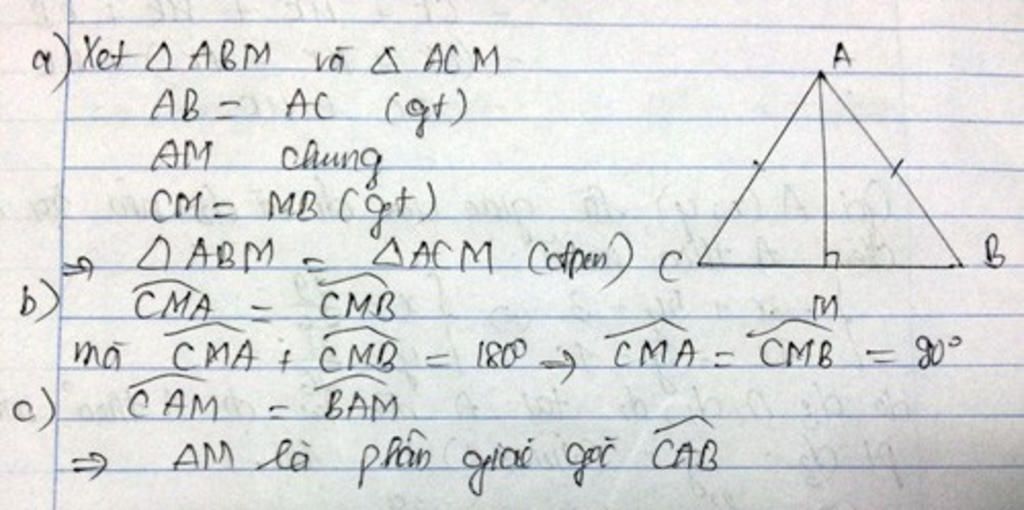 a) Xét △ ABM và △ ACM
AB = AC (gt)
AM chung
CM = MB (gt)
⇒ △ ABM = △ ACM
b) \widehat{CMA} = \widehat{CMB}
mà \widehat{CMA} + \widehat{CMB} = 180° ⇒ \widehat{CMA} = \widehat{CMB} = 90°
c) \widehat{CAM} = \widehat{BAM}
⇒ AM là phân giác góc \widehat{CAB}
A
C
B
M